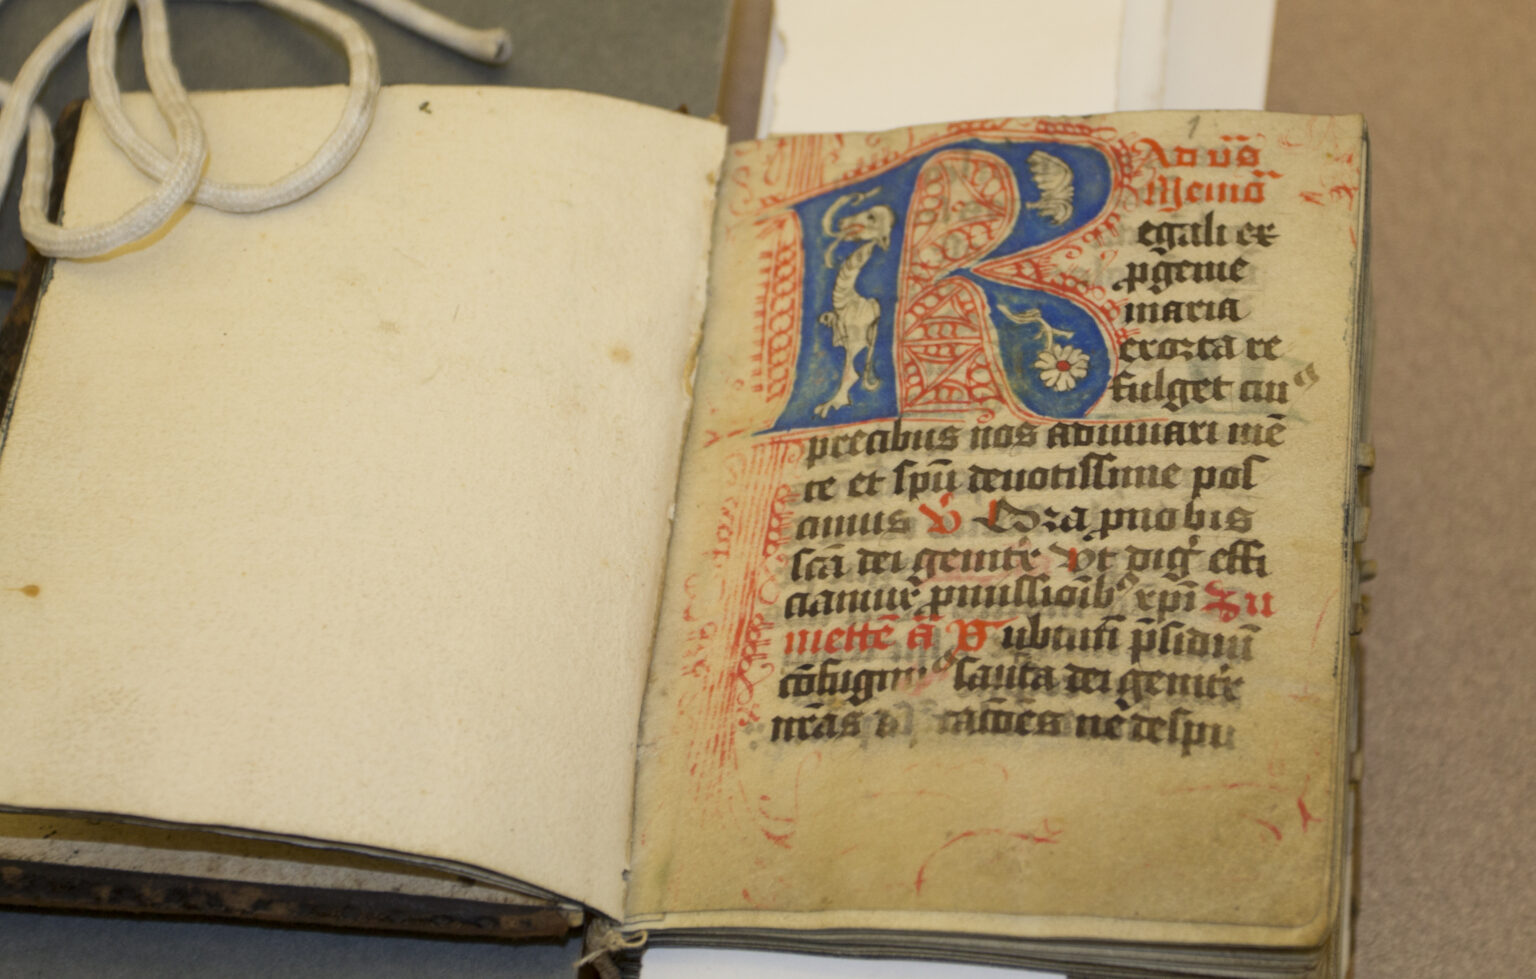 1
Ad vѣs
Memoꝰ
Regali ex
ꝓgenie
maria
exorta re
fulget cuiꝰ
precibus nos adiuuari mē
te et spū deuotissime pos
cimus V̄ Ora pnobis
scā dei genitͥx Vt digͥ effi
ciamur ꝓmissioībꝰ xpi Bn̄
mettē ā V̄ Sub tuū p̄sidiū
cōfugimꝰ sancta dei genitͥx
nr̄as d tacōēs ne despi